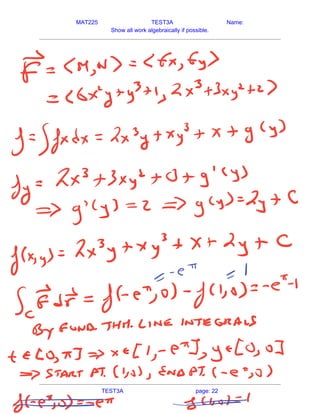 MAT225 TEST3A Name:
Show all work algebraically if possible.
F⃗ = <M,N> = <fx, fy>
= <6x²y+y³+1, 2x³+3xy²+2>
f = ∫fxdx = 2x³y + xy³ + x + g(y)
fy = 2x³+3xy²+0+g'(y)
⇒ g'(y) = 2 ⇒ g(y) = 2y + C
f(x,y) = 2x³y + xy³ + x + 2y + C
= -e^π = 1
∫_C F⃗·dr⃗ = f(-e^π,0) - f(1,0) = -e^π-1
By FUND. THM. LINE INTEGRALS
t∈[0,π] ⇒ x∈[1,-e^π], y∈[0,0]
⇒ START PT. (1,0), END PT. (-e^π,0)
TEST3A page: 22
f(-e^π,0) = -e^π f(1,0) = 1